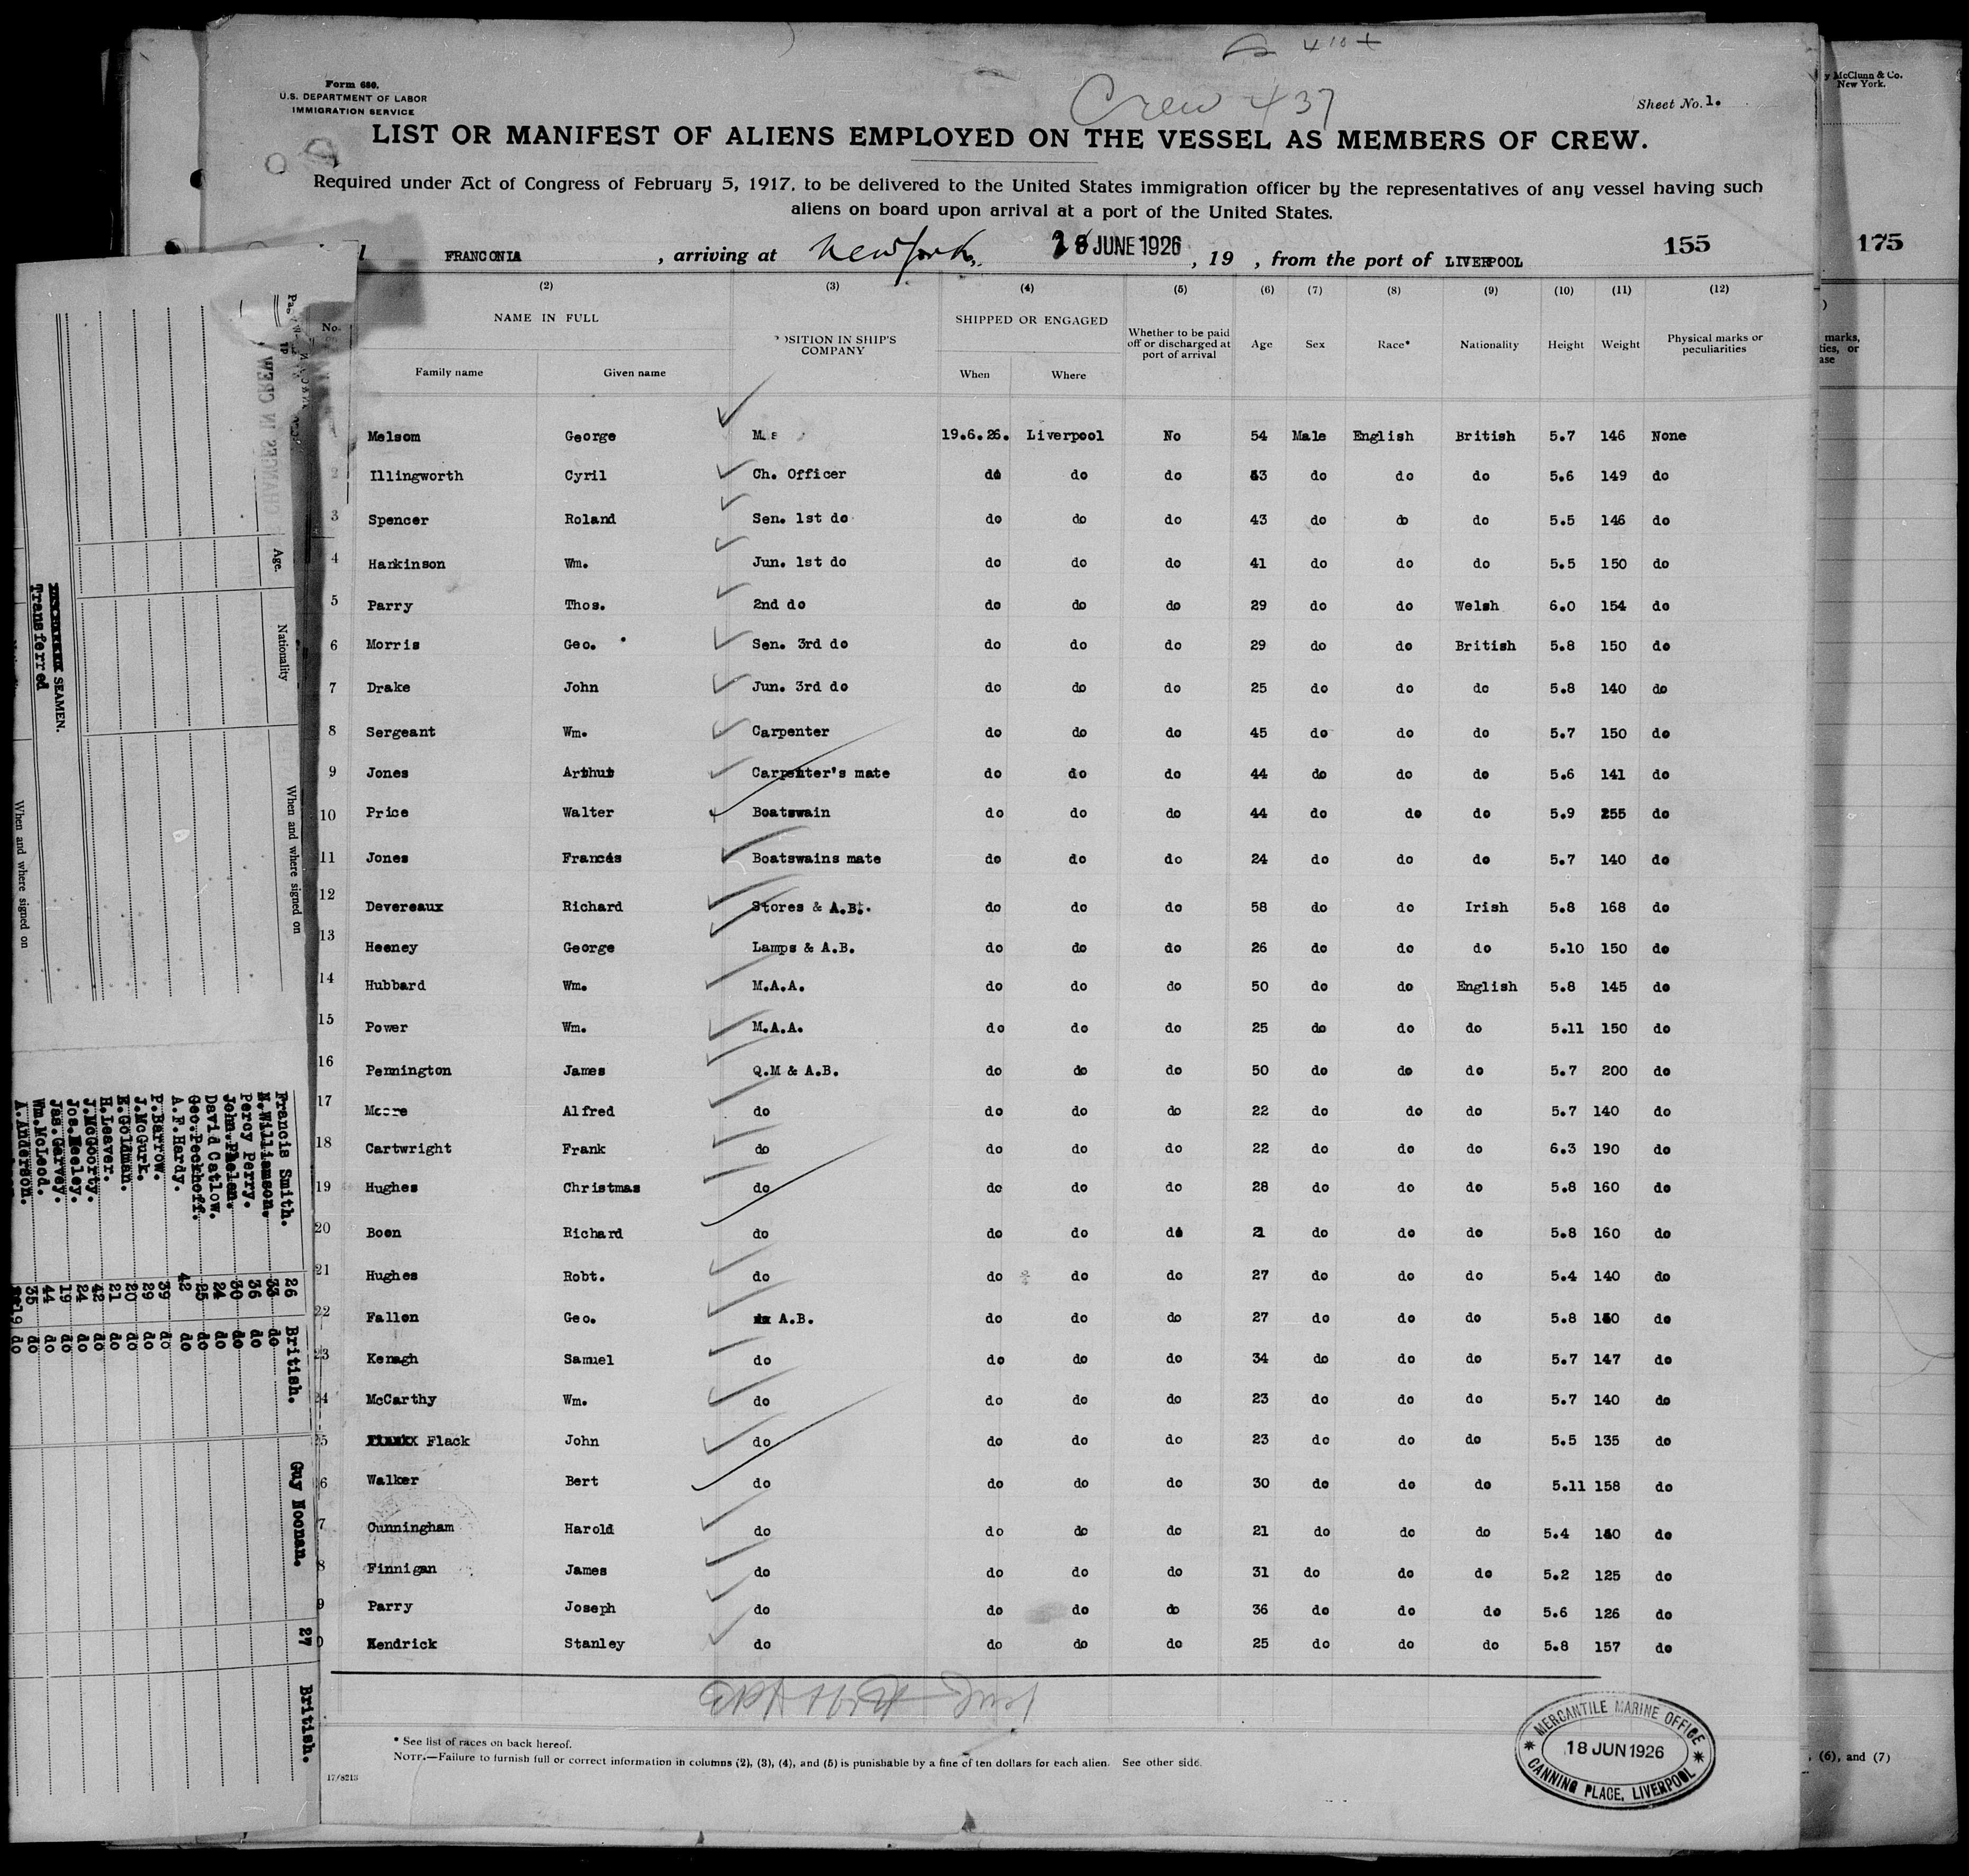 4 10 +
Crew 437
Form 680.
U.S. DEPARTMENT OF LABOR
IMMIGRATION SERVICE
Sheet No. 1.
y McClunn & Co.
New York.
LIST OR MANIFEST OF ALIENS EMPLOYED ON THE VESSEL AS MEMBERS OF CREW.
Required under Act of Congress of February 5, 1917, to be delivered to the United States immigration officer by the representatives of any vessel having such
aliens on board upon arrival at a port of the United States.
FRANCONIA , arriving at New York, 28 JUNE 1926 , 19 , from the port of LIVERPOOL 155 175
(2) (3) (4) (5) (6) (7) (8) (9) (10) (11) (12)
No. NAME IN FULL Family name Given name POSITION IN SHIP'S COMPANY SHIPPED OR ENGAGED When Where Whether to be paid off or discharged at port of arrival Age Sex Race* Nationality Height Weight Physical marks or peculiarities
Melsom George M.s 19.6.26. Liverpool No 54 Male English British 5.7 146 None
2 Illingworth Cyril Ch. Officer do do do 43 do do do 5.6 149 do
3 Spencer Roland Sen. 1st do do do do 43 do do do 5.5 146 do
4 Harkinson Wm. Jun. 1st do do do do 41 do do do 5.5 150 do
5 Parry Thos. 2nd do do do do 29 do do Welsh 6.0 154 do
6 Morris Geo. Sen. 3rd do do do do 29 do do British 5.8 150 do
7 Drake John Jun. 3rd do do do do 25 do do do 5.8 140 do
8 Sergeant Wm. Carpenter do do do 45 do do do 5.7 150 do
9 Jones Arthur Carpenter's mate do do do 44 do do do 5.6 141 do
10 Price Walter Boatswain do do do 44 do do do 5.9 255 do
11 Jones Francis Boatswains mate do do do 24 do do do 5.7 140 do
12 Devereaux Richard Stores & A.B. do do do 58 do do Irish 5.8 168 do
13 Heeney George Lamps & A.B. do do do 26 do do do 5.10 150 do
14 Hubbard Wm. M.A.A. do do do 50 do do English 5.8 145 do
15 Power Wm. M.A.A. do do do 25 do do do 5.11 150 do
16 Pennington James Q.M & A.B. do do do 50 do do do 5.7 200 do
17 Moore Alfred do do do do 22 do do do 5.7 140 do
18 Cartwright Frank do do do do 22 do do do 6.3 190 do
19 Hughes Christmas do do do do 28 do do do 5.8 160 do
20 Boon Richard do do do do 21 do do do 5.8 160 do
21 Hughes Robt. do do do do 27 do do do 5.4 140 do
22 Fallon Geo. A.B. do do do 27 do do do 5.8 do
23 Kenagh Samuel do do do do 34 do do do 5.7 147 do
24 McCarthy Wm. do do do do 23 do do do 5.7 140 do
25 Flack John do do do do 23 do do do 5.5 135 do
6 Walker Bert do do do do 30 do do do 5.11 158 do
7 Cunningham Harold do do do do 21 do do do 5.4 do
8 Finnigan James do do do do 31 do do do 5.2 125 do
9 Parry Joseph do do do do 36 do do do 5.6 126 do
0 Kendrick Stanley do do do do 25 do do do 5.8 157 do
* See list of races on back hereof.
NOTE.—Failure to furnish full or correct information in columns (2), (3), (4), and (5) is punishable by a fine of ten dollars for each alien. See other side.
17/8213
MERCANTILE MARINE OFFICE
18 JUN 1926
CANNING PLACE, LIVERPOOL
marks,
ties, or
ase
, (6), and (7)
CHANGES IN CREW
Age.
Nationality
When and where signed on
SEAMEN.
Transferred
When and where signed on
Guy Noonan. 27 British.
Francis Smith. 26 British.
N.Williamson. 33 do
Percy Perry. 36 do
John.Phelan. 30 do
David Catlow. 24 do
Geo.Peckhoff. 25 do
A.F.Hardy. 42 do
P.Barrow. 39 do
J.McGurk. 29 do
E.Goldman. 20 do
H.Leaver. 21 do
J.McGoorty. 42 do
Jos.Neeley. 24 do
Jas.Garvey. 19 do
Wm.McLeod. 44 do
A.Anderson. 35 do